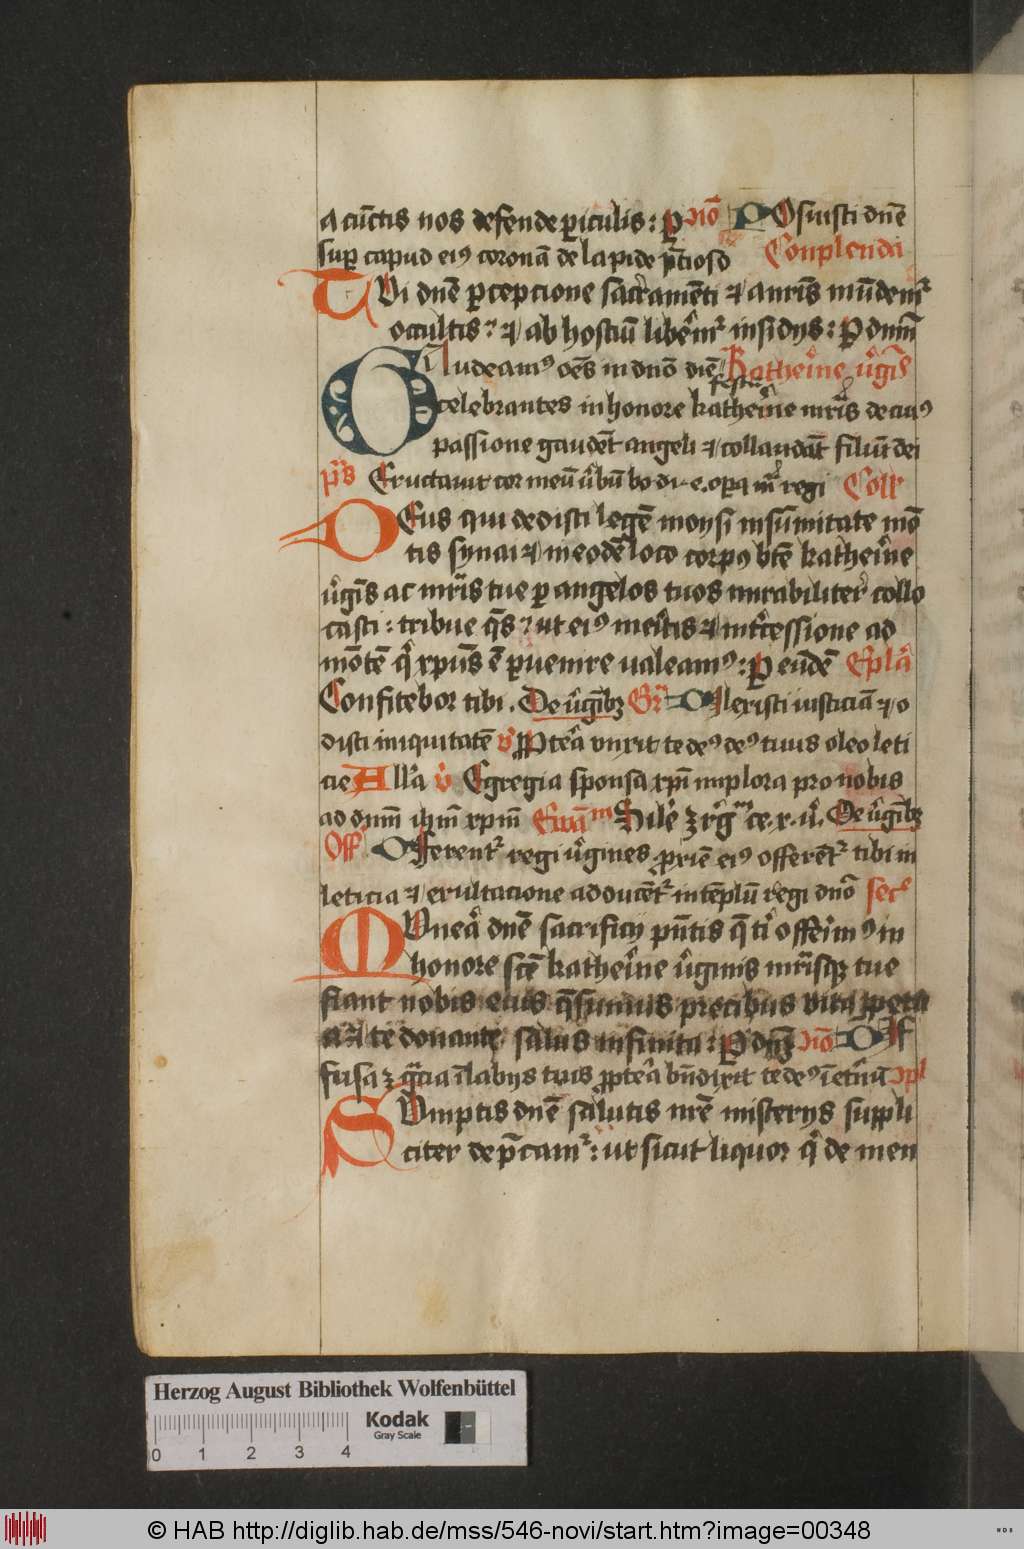 a cūctis nos defende ꝑiculis : ꝑ ɔīo Posuisti dn̄e
suꝑ capud eiꝰ coronā de lapide p̄ciosō Conplenda
Tui dn̄e ꝑcepcione sacramēti ⁊ a nr̄is mūdemᷣ
occultis : ⁊ ab hostiū liberemᷣ insidijs : Ꝑ dnm̄
Gaudeamꝰ oēs in dn̄o diē Katherine v̓gīs
festū
celebrantes in honore katherine mr̄is de cuiꝰ
passione gaudēt angeli ⁊ collaudāt filiū dei
p̄s Eructauit cor meū v̓bū bo di e. oꝑa m regi Coll
Deus qui dedisti legē moysi in sūmitate mō
tis synai ⁊ in eodē loco corpꝰ btē katherine
v̓gīs ac mr̄is tue ꝑ angelos tuos mirabiliter collo
casti : tribue q̄s : ut eiꝰ meritis ⁊ intcessione ad
mōtē q xp̄us ē ꝑuenire ualeamꝰ : Ꝑ eūdē Epl̄a
Confitebor tibi . De v̓gībꝫ Gr̄ Dilexisti iusticiā ⁊ o
disti iniquitatē v̓ Propt̄ea vnxit te deꝰ deꝰ tuus oleo leti
cie All̄a v̓ Egregia sponsa xp̄i implora pro nobis
ad dnm̄ ihm̄ xp̄m Ewā Sil̄e ꝫ rḡ ce. x. v̓. De v̓gībꝫ
Off Offerentᷣ regi v̓gines ꝓxiē eiꝰ offerētᷣ tibi in
leticia ⁊ exultacione adducētᷣ in tēplū regi dn̄o secᷓ
Munea dn̄e sacrificij pn̄tis q̄ ti offerimꝰ in
honore sctē katherine v̓ginis mr̄isqꝫ tue
fiant nobis eius q̄sumus precibus vita ꝓpetu
a ⁊ te donante salus infinita : Ꝑ dn̄ꝫ ɔīo Dif
fusa ꝫ gr̄cia ī labijs tuis ꝓpt̄ea bn̄dixit te deꝰ ī etnū ɔpl
Sumptis dn̄e salutis nr̄e misterijs suppli
citer dep̄camᷣ : ut sicut liquor q de men
Herzog August Bibliothek Wolfenbüttel
Kodak
Gray Scale
0 1 2 3 4
© HAB http://diglib.hab.de/mss/546-novi/start.htm?image=00348